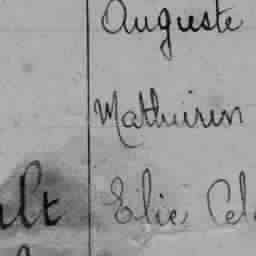 Auguste
Mathurin
Elie